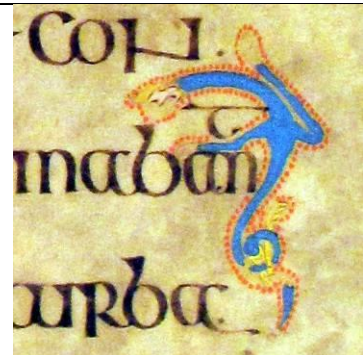 con.
inabant
urba